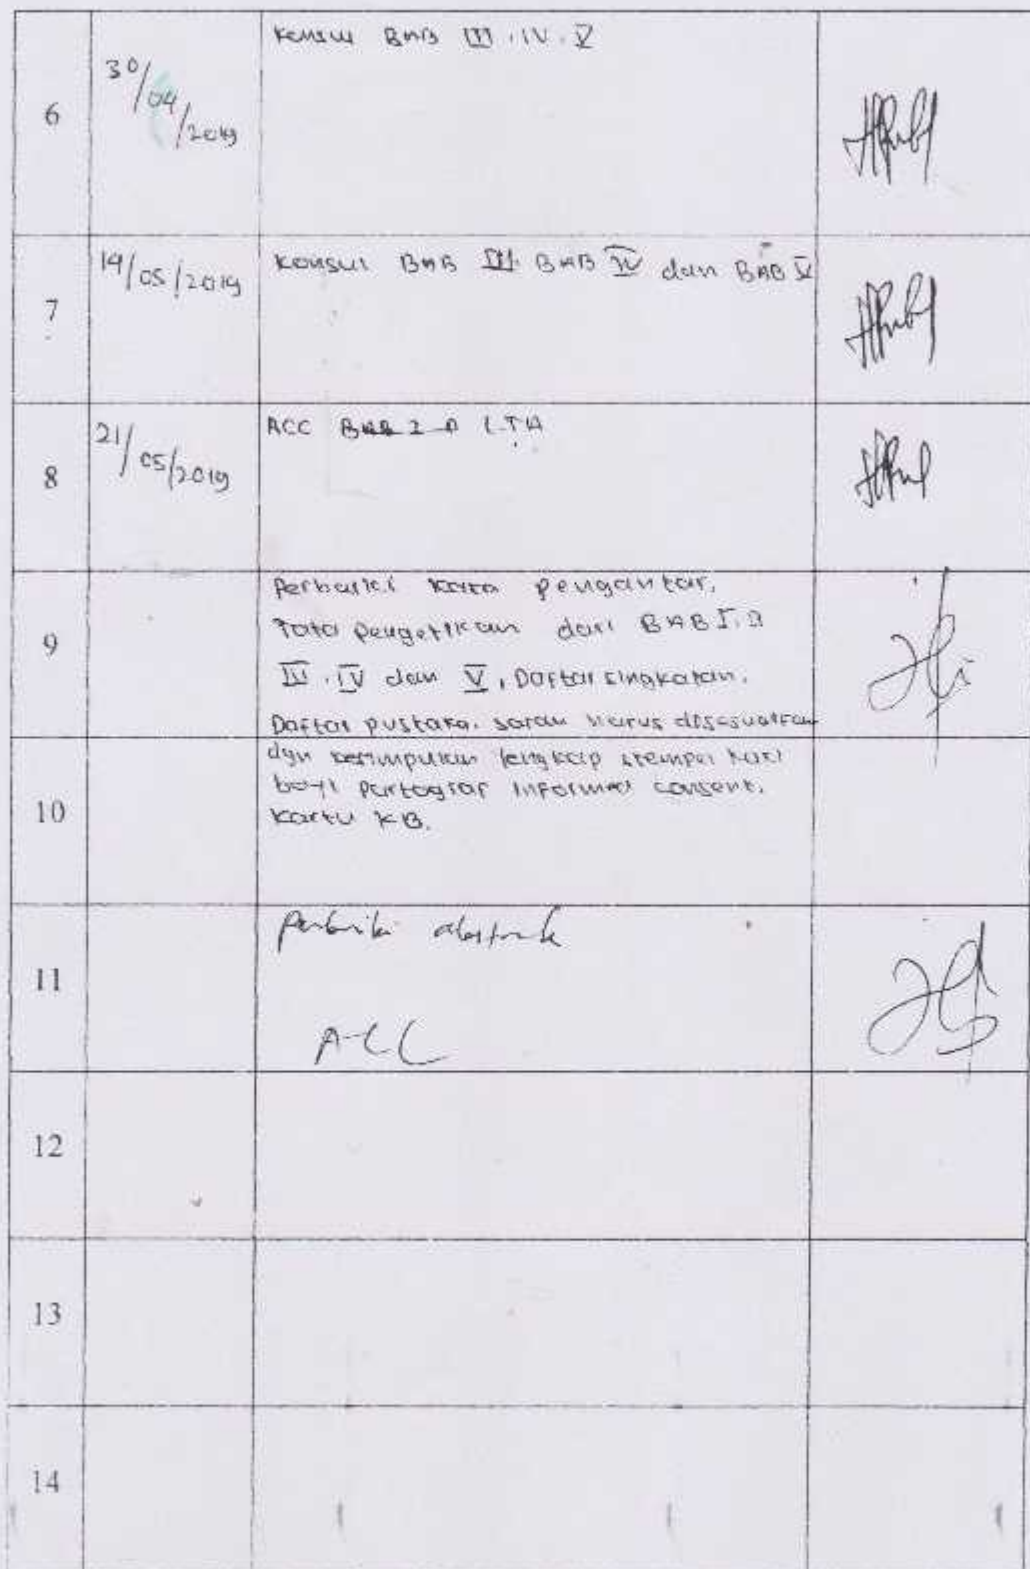 6
30/04/2019
Konsul BAB III . IV . V
7
14/05/2019
Konsul BAB III. BAB IV dan BAB V
8
21/05/2019
ACC LTA
9
Perbaiki kata pengantar,
Tata pengetikan dari BAB I, II
III . IV dan V, Daftar singkatan.
Daftar pustaka. saran harus disesuaikan
10
dgn kesimpulan lengkap stempel kaki
bayi Partograf Informed consent.
Kartu KB.
11
perbaiki abstrak
ACC
12
13
14